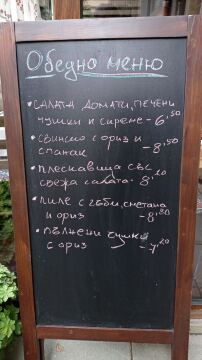 Обедно меню
• САЛАТА ДОМАТИ, ПЕЧЕНИ
ЧУШКИ И СИРЕНЕ - 6,50
• СВИНСКО С ОРИЗ И
СПАНАК - 8,50
• ПЛЕСКАВИЦА СЪС
СВЕЖА САЛАТА - 8,20
• ПИЛЕ С ГЪБИ, СМЕТАНА
И ОРИЗ - 8,80
• ПЪЛНЕНИ ЧУШКИ
С ОРИЗ - 7,20